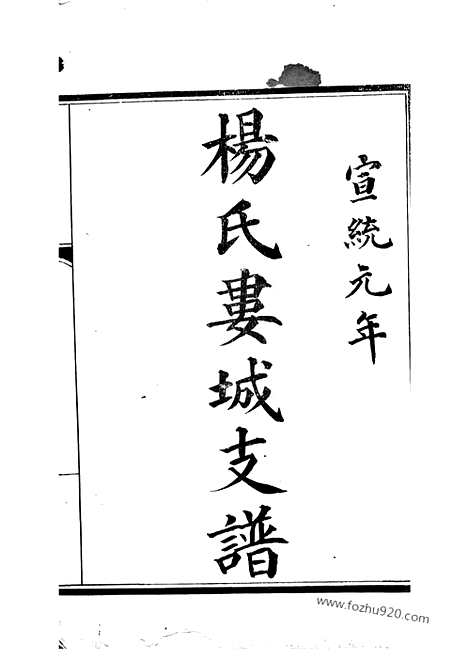 宣統元年
楊氏婁城支譜
www.fozhu920.com